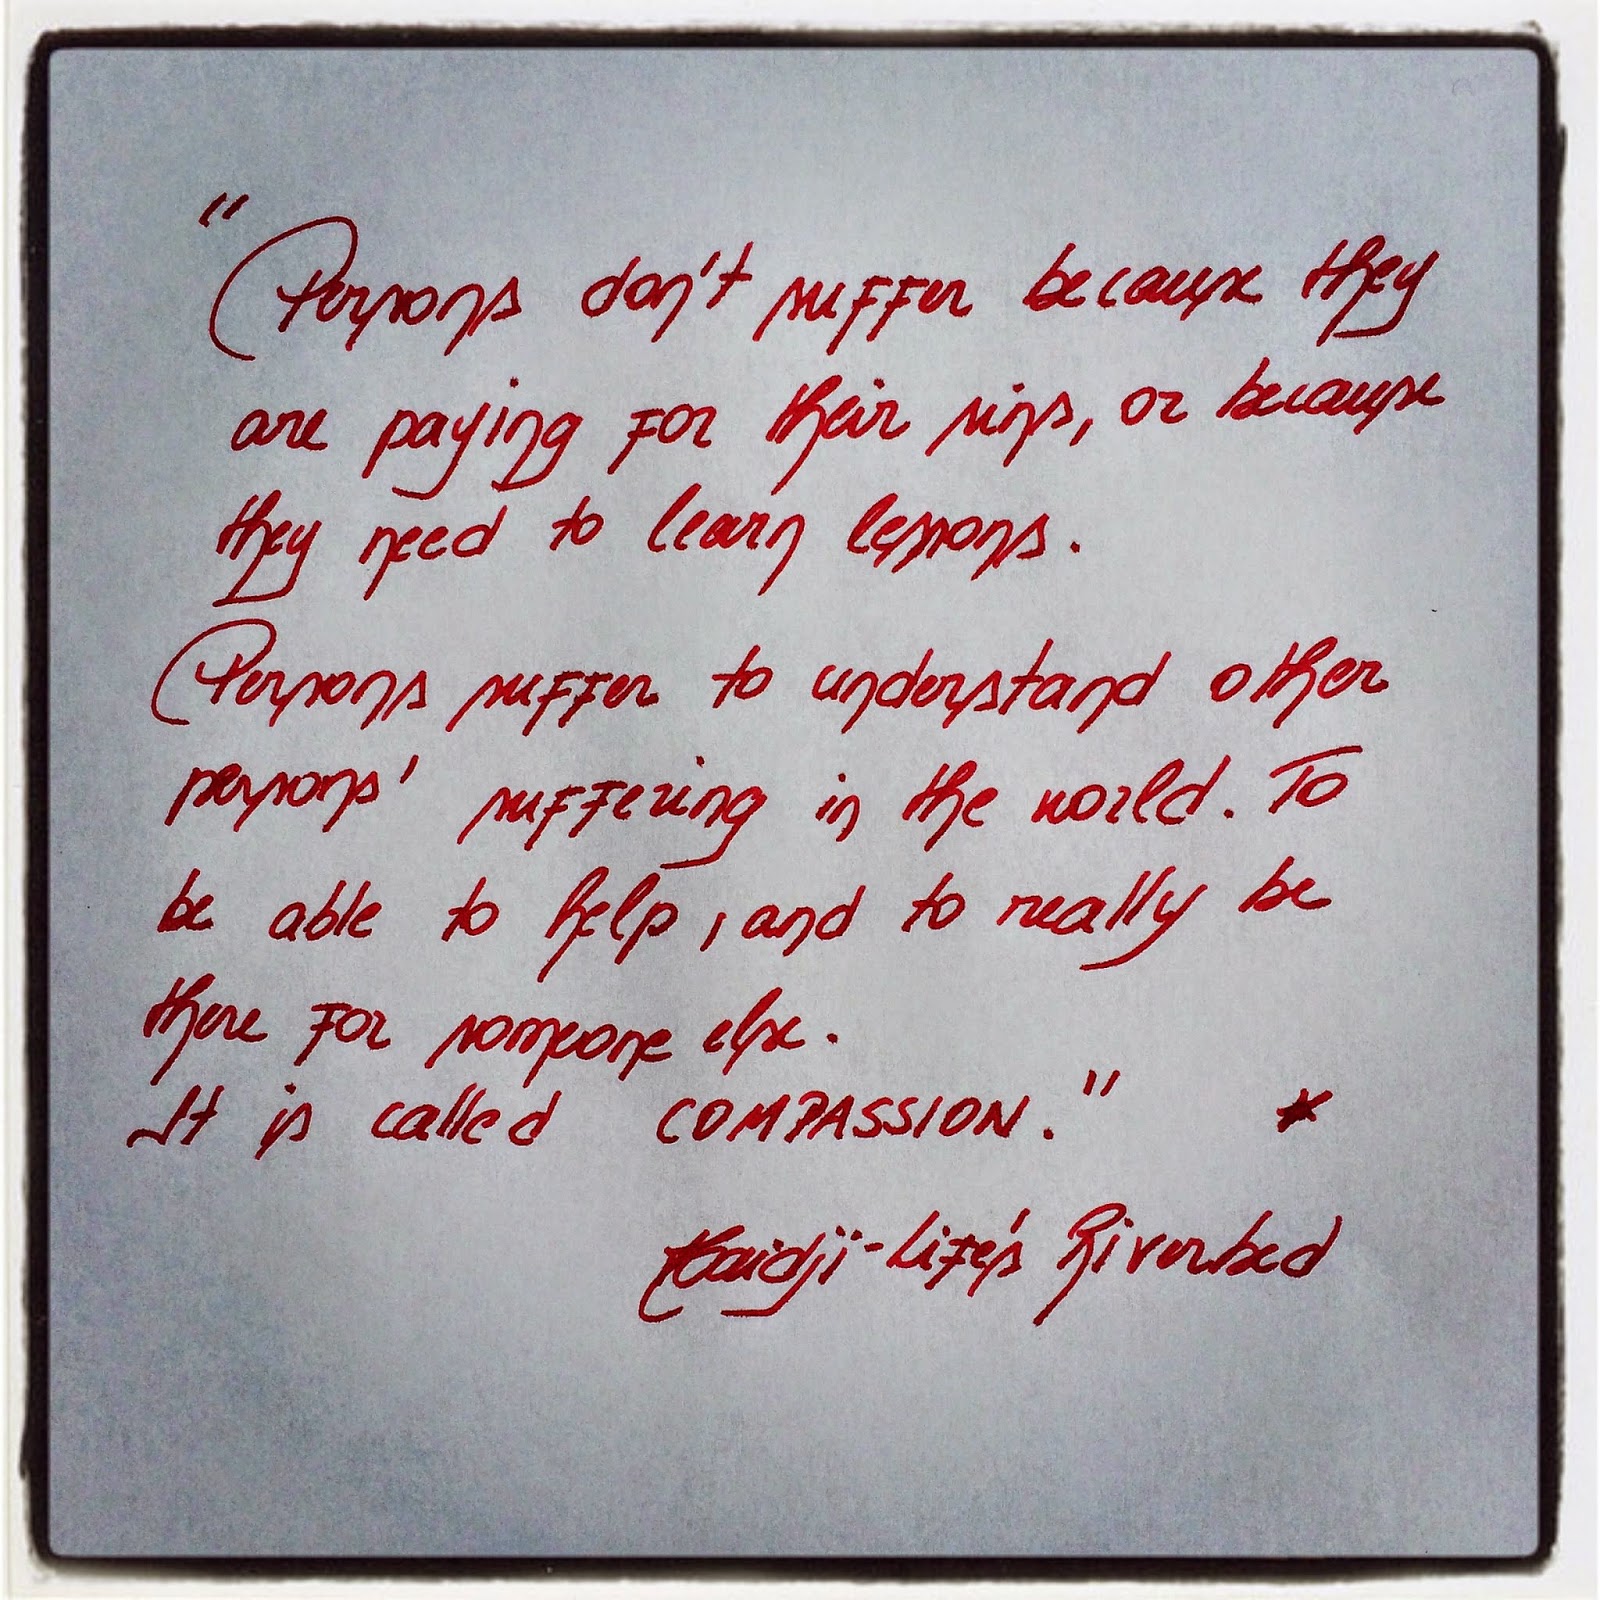 "Persons don't suffer because they
are paying for their sins, or because
they need to learn lessons.
Persons suffer to understand other
persons' suffering in the world. To
be able to help, and to really be
there for someone else.
It is called COMPASSION." *
Haidji - Life's Riverbed